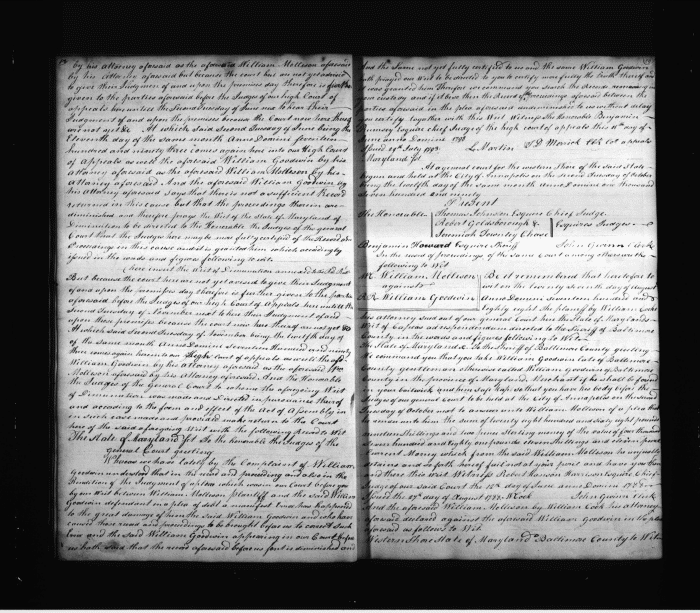 by his attorney aforesaid as the aforesaid William Mollison aforesaid
by his attorney aforesaid but because the court here are not yet advised
to give their Judgment of and upon the premises day therefore is further
given to the parties aforesaid before the Judges of our high Court of
appeals here until the second Tuesday of June next to hear their
Judgment of and upon the premises because the Court now here thereof
are not yet &c At which said second Tuesday of June being the
Eleventh day of the same month Anno Domini seventeen
hundred and ninety three comes again here into our High Court
of Appeals as well the aforesaid William Goodwin by his
Attorney aforesaid as the aforesaid William Mollison by his
Attorney aforesaid And the aforesaid William Goodwin by
his Attorney aforesaid says that there is not a sufficient Record
returned in this cause but that the proceedings therein are
diminished and therefore prays the Writ of the State of Maryland of
Diminution to be directed to the Honorable the Judges of the general
Court that the Judges here may be more fully certified of the Record and
Proceedings in this cause and it is granted him which accordingly
issued in the words and figures following to wit
(here insert the Writ of Diminution annexed
But because the court here are not yet advised to give their Judgment
of and upon the premises day therefore is further given to the parties
aforesaid before the Judges of our high Court of Appeals here until the
second Tuesday of November next to hear their Judgment of and
upon those premises because the court now here thereof are not yet &c
At which said second Tuesday of November being the twelfth day of
of the same month Anno Domini seventeen Hundred and ninety
three comes again here into our High Court of appeals as well the afsd
William Goodwin by his attorney aforesaid as the aforesaid Wm
Mollison aforesaid by his Attorney aforesaid, And the Honorable
the Judges of the General Court to whom the aforegoing Writ
of Diminution was made and Directed in pursuance thereof
and according to the form and effect of the Act of Assembly in
in such case made and provided make return to the Court
here of the said aforegoing Writ with the following record to Wit
The State of Maryland Sct To the honorable the Judges of the
general Court greeting
Whereas we have lately by the Complaint of William
Goodwin understood that in the record and proceedings and also in the
Rendition of the Judgment of a plea which was in our Court before you
by our Writ between William Mollison plaintiff and the said William
Goodwin defendant in a plea of debt a manifest Error has happened
to the great damage of him the said William Goodwin and we have
caused those record and proceedings to be brought before us to correct such
Error and the said William Goodwin appearing in our Court before
us hath said that the record aforesaid before us sent is diminished and
And the same not yet fully certified to us and the same William Goodwin
hath prayed our Writ to be directed to you to certify more fully the truth thereof and
it was granted him Therefore we command you search the Records
your custody and if it be then the Record of the proceedings aforesaid between the
parties aforesaid in the plea aforesaid undiminished to us without delay
you certify together with this Writ Witness the Honorable Benjamin
Rumsey Esquire chief Judge of the high court of appeals this 11th day of
June anno Domini 1793
Issued 29th July 1793 L. Martin
Maryland Sct
At a general court for the western Shore of the said State
begun and held at the City of Annapolis on the second Tuesday of October
being the twelfth day of the same month Anno Domini one thousand
seven hundred and ninety
Present
The Honorable Thomas Johnson Esquire Chief Judge
Robert Goldsborough &
Jeremiah Townley Chase Esquires Judges
Benjamin Howard Esquire Sheriff John Gwinn Clerk
In the record of proceedings of the same Court among others is the
following to Wit
William Mollison Be it remembered that heretofore to
against wit on the twenty seventh day of August
William Goodwin Anno Domini seventeen hundred and
eighty eight the plaintiff by William Cooke
his attorney sued out of our general court here the State of Maryland
Writ of Capias ad respondendum directed to the Sheriff of Baltimore
County in the words and figures following to Wit
The State of Maryland To the Sheriff of Baltimore County greeting
We command you that you take William Goodwin late of Baltimore
County gentleman otherwise called William Goodwin of Baltimore
County in the province of Maryland, Merchant if he shall be found
in your bailiwick and him safe keep so that you have his body before the
Judges of our general Court to be held at the City of Annapolis on the second
Tuesday of October next to answer unto William Mollison of a plea that
he render unto him the sum of twenty eight hundred and sixty eight pounds
Current Money which from the said William Mollison he unjustly
detains and so forth hereof fail not at your peril and have you then
and there this Writ Witness Robert Hanson Harrison Esquire Chief
Judge of our said Court the day of June anno Domini 1788
Issued the 27th day of August 1788 W Cooke John Gwinn Clerk
And the aforesaid William Mollison by William Cooke his attorney
aforesaid declared against the aforesaid William Goodwin in the plea
aforesaid as follows to Wit
Western Shore State of Maryland Baltimore County to Wit